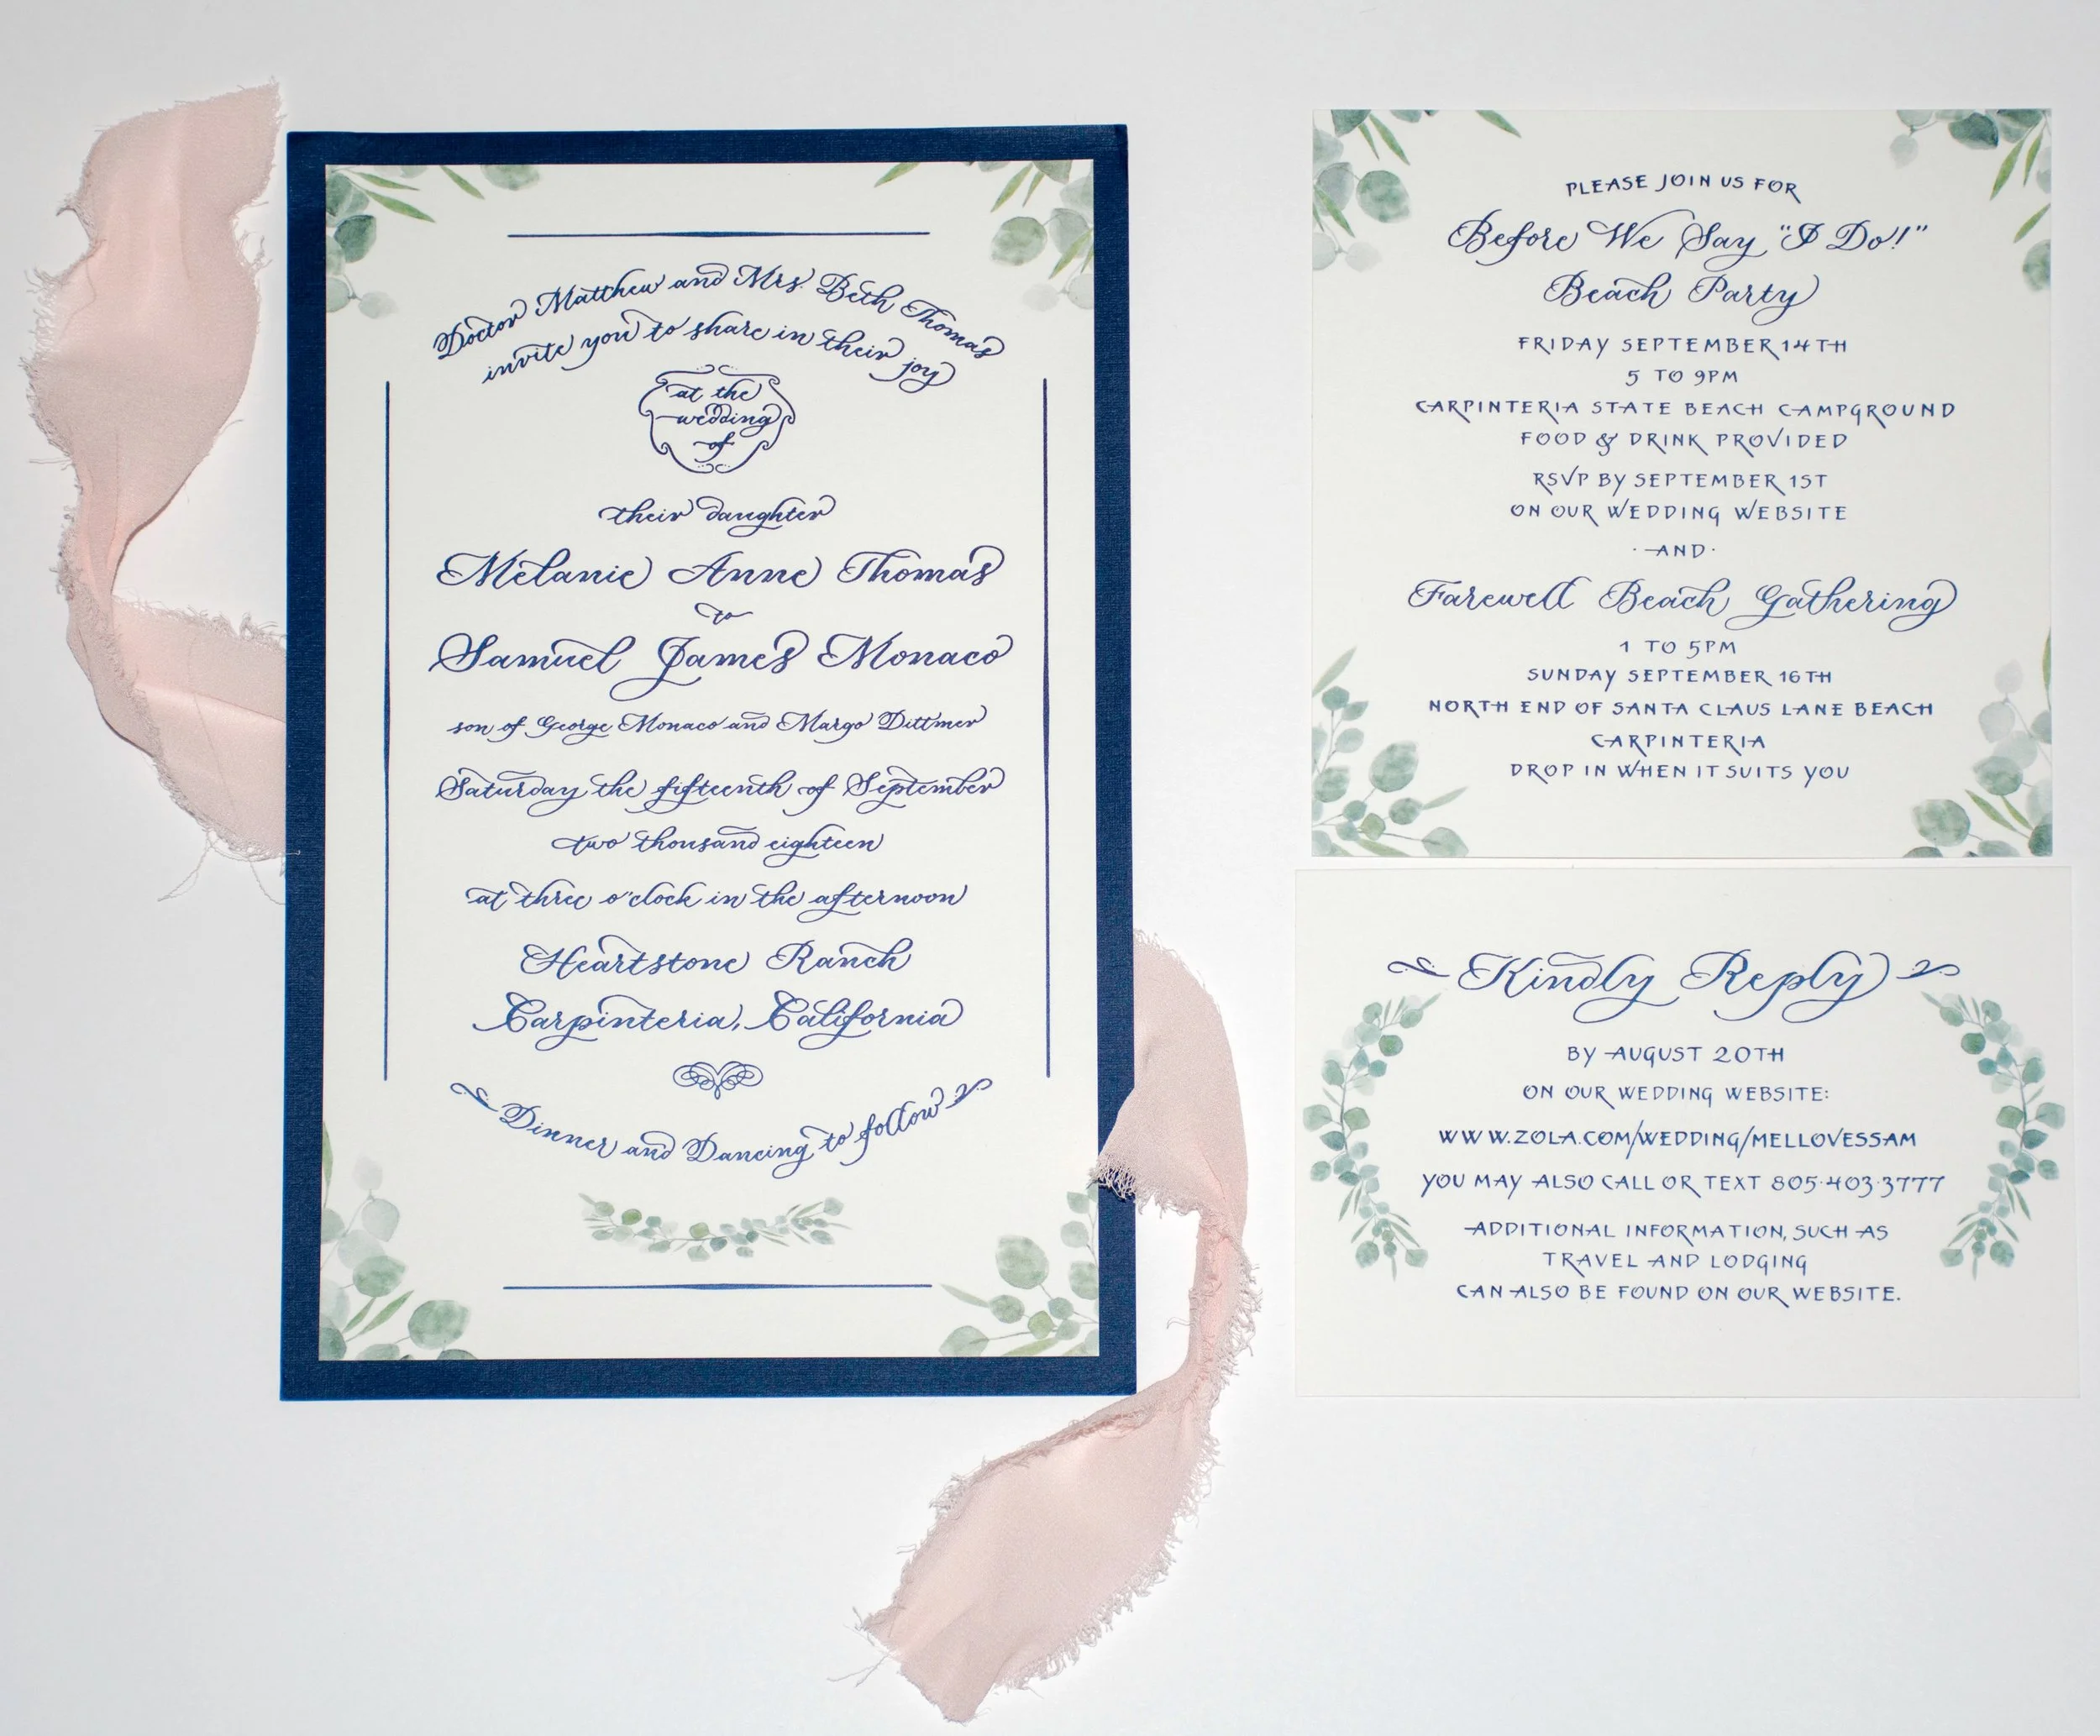 Doctor Matthew and Mrs. Beth Thomas
invite you to share in their joy
at the
wedding
of
their daughter
Melanie Anne Thomas
to
Samuel James Monaco
son of George Monaco and Margo Dittmer
Saturday the fifteenth of September
two thousand eighteen
at three o'clock in the afternoon
Heartstone Ranch
Carpinteria, California
Dinner and Dancing to follow
PLEASE JOIN US FOR
Before We Say "I Do!"
Beach Party
FRIDAY SEPTEMBER 14TH
5 TO 9PM
CARPINTERIA STATE BEACH CAMPGROUND
FOOD & DRINK PROVIDED
RSVP BY SEPTEMBER 1ST
ON OUR WEDDING WEBSITE
·AND·
Farewell Beach Gathering
1 TO 5PM
SUNDAY SEPTEMBER 16TH
NORTH END OF SANTA CLAUS LANE BEACH
CARPINTERIA
DROP IN WHEN IT SUITS YOU
Kindly Reply
BY AUGUST 20TH
ON OUR WEDDING WEBSITE:
WWW.ZOLA.COM/WEDDING/MELLOVESSAM
YOU MAY ALSO CALL OR TEXT 805·403·3777
ADDITIONAL INFORMATION, SUCH AS
TRAVEL AND LODGING
CAN ALSO BE FOUND ON OUR WEBSITE.